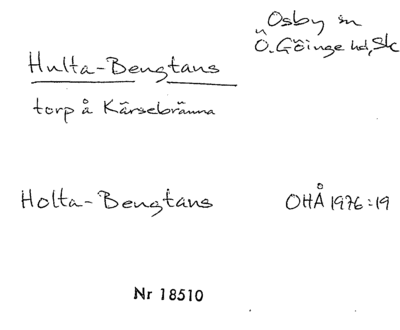 Osby sn
Ö. Göinge hd, Sk
Hulta-Bengtans
torp å Kärsebränna
Holta-Bengtans
OHÅ 1976:19
Nr 18510